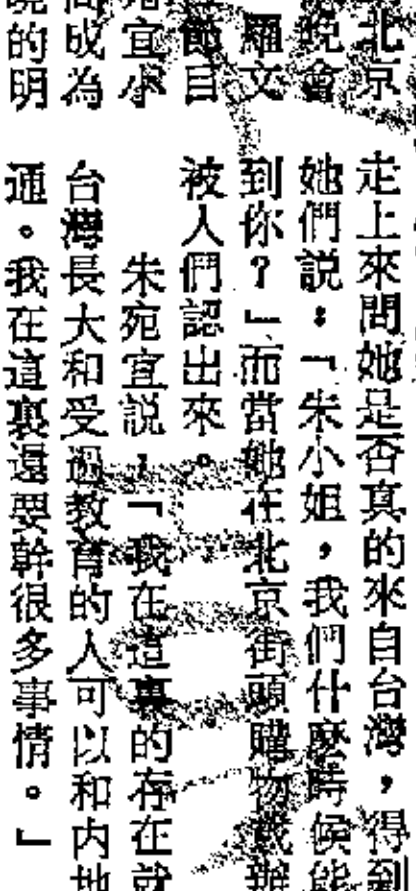 北京
晚會
羅文
節目
宜小
成為
的明
走上來問她是否真的來自台灣，得到
她們説：「朱小姐，我們什麼時候能
到你？」而當她在北京街頭購物或辦
被人們認出來。
朱宛宜説，「我在這裏的存在就
台灣長大和受過教育的人可以和内地
通。我在這裏還要幹很多事情。」